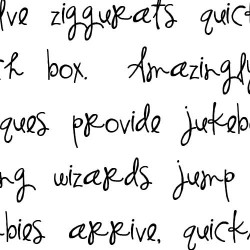 lve ziggurats quick
h box. Amazingly
ques provide jukeb
ng wizards jump
bies arrive, quick